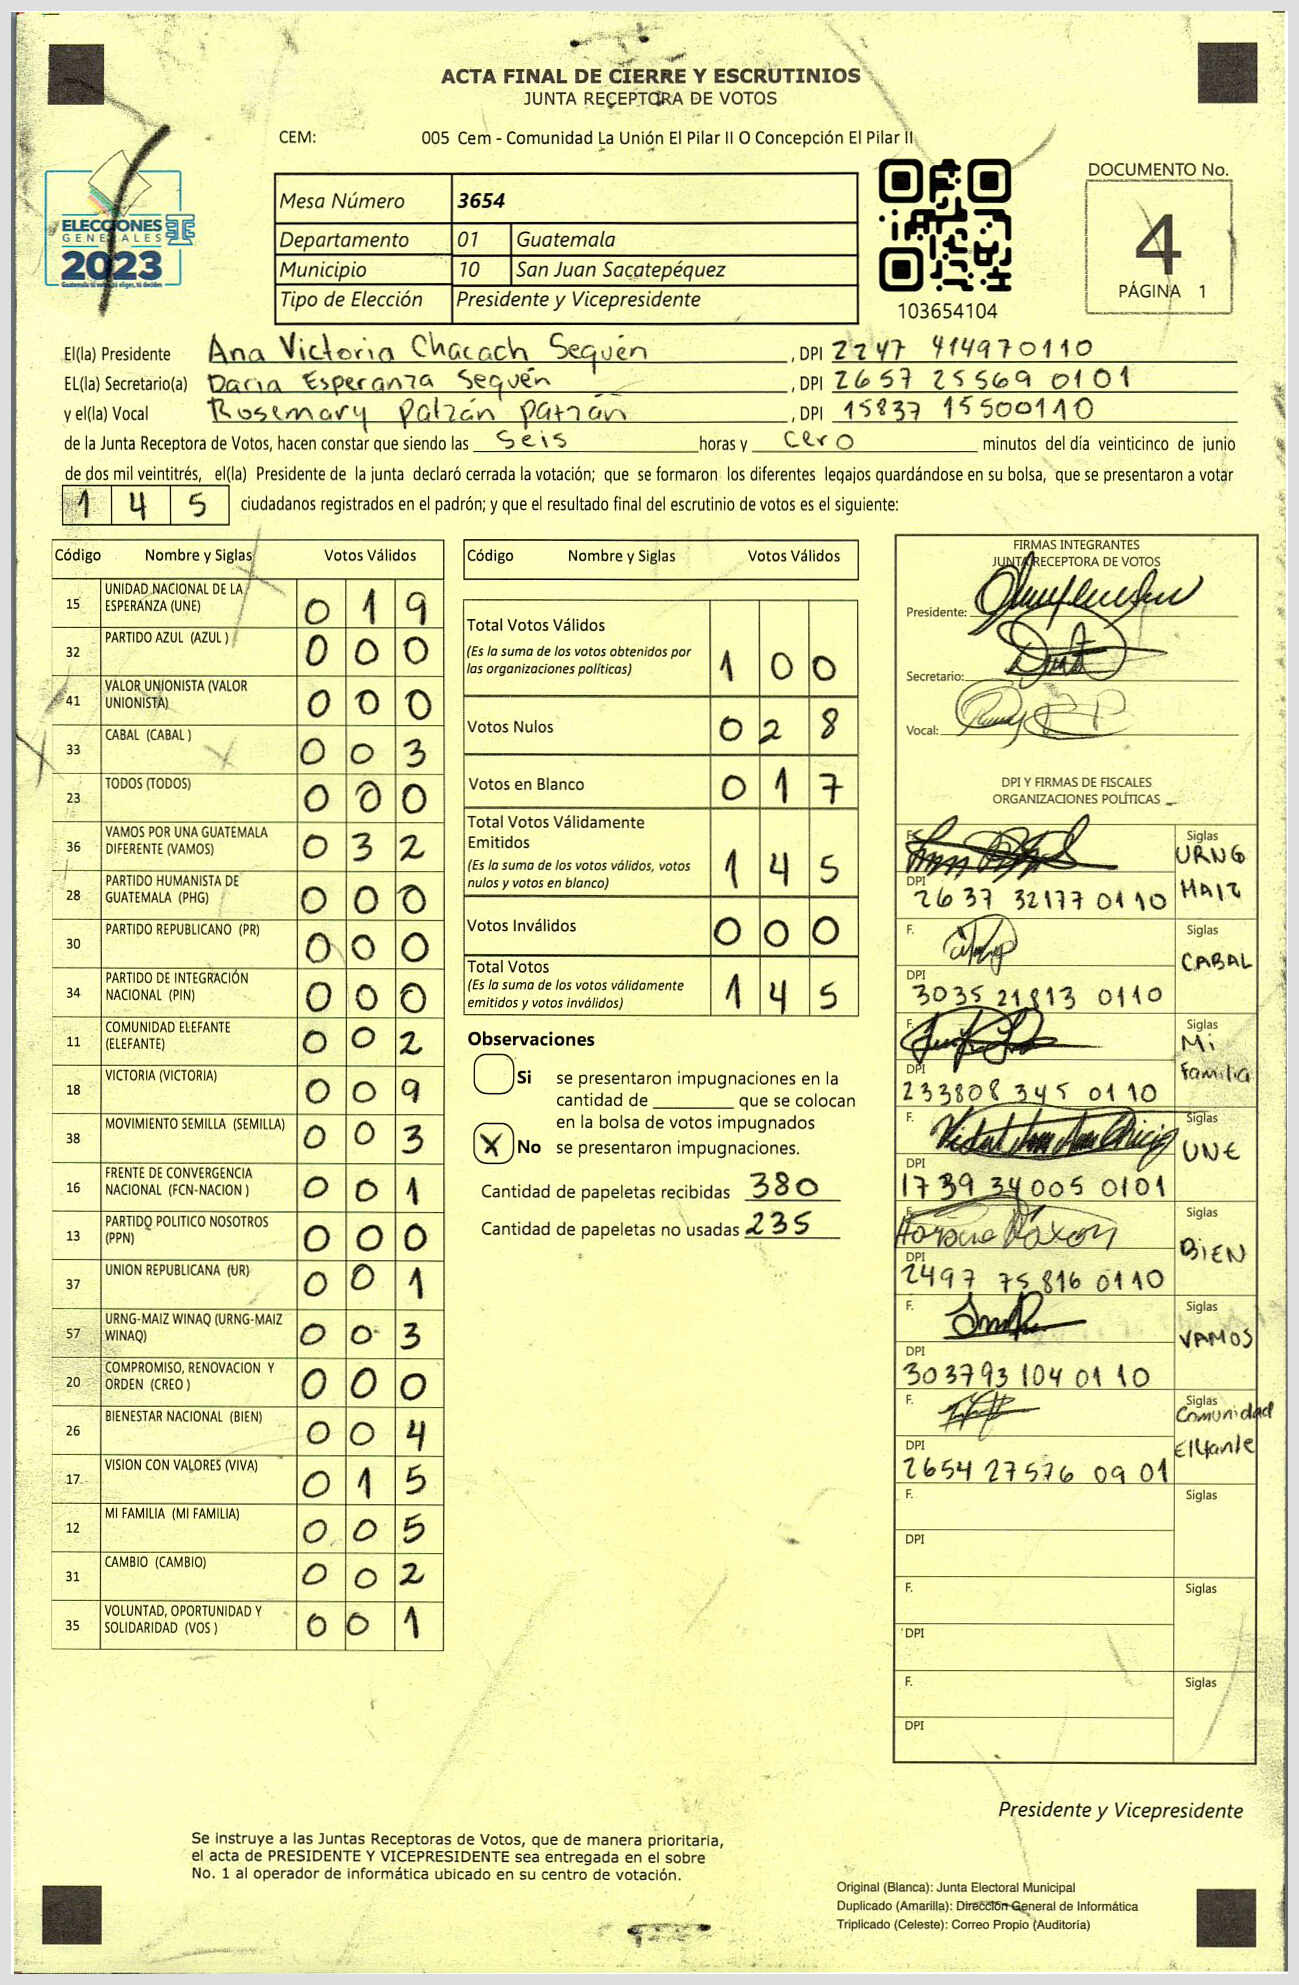 ACTA FINAL DE CIERRE Y ESCRUTINIOS
JUNTA RECEPTORA DE VOTOS
CEM: 005 Cem - Comunidad La Unión El Pilar II O Concepción El Pilar II
ELECCIONES
GENERALES
2023
Guatemala tú votas, tú eliges, tú decides
Mesa Número 3654
Departamento 01 Guatemala
Municipio 10 San Juan Sacatepéquez
Tipo de Elección Presidente y Vicepresidente
103654104
DOCUMENTO No.
4
PÁGINA 1
El(la) Presidente Ana Victoria Chacach Sequén , DPI 2247 41497 0110
EL(la) Secretario(a) Daria Esperanza Sequén , DPI 2657 25569 0101
y el(la) Vocal Rosemary Patzán Patzán , DPI 15837 15500110
de la Junta Receptora de Votos, hacen constar que siendo las seis horas y cero minutos del día veinticinco de junio
de dos mil veintitrés, el(la) Presidente de la junta declaró cerrada la votación; que se formaron los diferentes legajos guardándose en su bolsa, que se presentaron a votar
1 4 5 ciudadanos registrados en el padrón; y que el resultado final del escrutinio de votos es el siguiente:
Código Nombre y Siglas Votos Válidos
15 UNIDAD NACIONAL DE LA ESPERANZA (UNE) 0 1 9
32 PARTIDO AZUL (AZUL ) 0 0 0
41 VALOR UNIONISTA (VALOR UNIONISTA) 0 0 0
33 CABAL (CABAL ) 0 0 3
23 TODOS (TODOS) 0 0 0
36 VAMOS POR UNA GUATEMALA DIFERENTE (VAMOS) 0 3 2
28 PARTIDO HUMANISTA DE GUATEMALA (PHG) 0 0 0
30 PARTIDO REPUBLICANO (PR) 0 0 0
34 PARTIDO DE INTEGRACIÓN NACIONAL (PIN) 0 0 0
11 COMUNIDAD ELEFANTE (ELEFANTE) 0 0 2
18 VICTORIA (VICTORIA) 0 0 9
38 MOVIMIENTO SEMILLA (SEMILLA) 0 0 3
16 FRENTE DE CONVERGENCIA NACIONAL (FCN-NACION ) 0 0 1
13 PARTIDO POLITICO NOSOTROS (PPN) 0 0 0
37 UNION REPUBLICANA (UR) 0 0 1
57 URNG-MAIZ WINAQ (URNG-MAIZ WINAQ) 0 0 3
20 COMPROMISO, RENOVACION Y ORDEN (CREO ) 0 0 0
26 BIENESTAR NACIONAL (BIEN) 0 0 4
17 VISION CON VALORES (VIVA) 0 1 5
12 MI FAMILIA (MI FAMILIA) 0 0 5
31 CAMBIO (CAMBIO) 0 0 2
35 VOLUNTAD, OPORTUNIDAD Y SOLIDARIDAD (VOS ) 0 0 1
Código Nombre y Siglas Votos Válidos
Total Votos Válidos
(Es la suma de los votos obtenidos por
las organizaciones políticas) 1 0 0
Votos Nulos 0 2 8
Votos en Blanco 0 1 7
Total Votos Válidamente
Emitidos
(Es la suma de los votos válidos, votos
nulos y votos en blanco) 1 4 5
Votos Inválidos 0 0 0
Total Votos
(Es la suma de los votos válidamente
emitidos y votos inválidos) 1 4 5
Observaciones
Si se presentaron impugnaciones en la
cantidad de ________ que se colocan
en la bolsa de votos impugnados
X No se presentaron impugnaciones.
Cantidad de papeletas recibidas 380
Cantidad de papeletas no usadas 235
FIRMAS INTEGRANTES
JUNTA RECEPTORA DE VOTOS
Presidente:
Secretario:
Vocal:
DPI Y FIRMAS DE FISCALES
ORGANIZACIONES POLÍTICAS
F. Siglas URNG MAIZ
DPI 2637 32177 0110
F. Siglas CABAL
DPI 3035 21813 0110
F. Siglas Mi Familia
DPI 233808 345 0110
F. Siglas UNE
DPI 1739 34005 0101
F. Siglas BIEN
DPI 2497 75816 0110
F. Siglas VAMOS
DPI 303793 104 0110
F. Siglas Comunidad Elefante
DPI 2654 27576 0901
F. Siglas
DPI
F. Siglas
DPI
F. Siglas
DPI
Presidente y Vicepresidente
Se instruye a las Juntas Receptoras de Votos, que de manera prioritaria,
el acta de PRESIDENTE Y VICEPRESIDENTE sea entregada en el sobre
No. 1 al operador de informática ubicado en su centro de votación.
Original (Blanca): Junta Electoral Municipal
Duplicado (Amarilla): Dirección General de Informática
Triplicado (Celeste): Correo Propio (Auditoría)